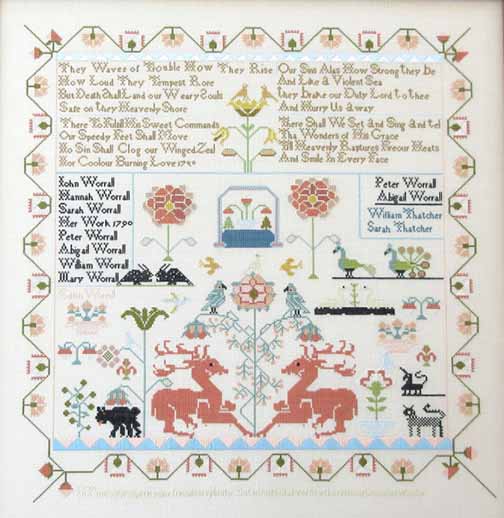 They Waves of Trouble How They Rise
How Loud They Tempest Rore
But Death Shall Land our Weary Souls
Safe on they Heavenly Shore
There To Fulfill His Sweet Commands
Our Speedy Feet Shall Move
No Sin Shall Clog our Winged Zeal
Nor Cool our Burning Love 1790
Our Sins Alas How Strong they Be
And Like a Violent Sea
they Brake our Duty Lord to thee
And Hurry Us away
There Shall We Set and Sing and tel
Tha Wonders of His Grace
Till Heavenly Raptures Fireour Hearts
And Smile In Every Face
Iohn Worrall
Hannah Worrall
Sarah Worrall
Her Work 1790
Peter Worrall
Abigail Worrall
William Worrall
Mary Worrall
Peter Worrall
Abigail Worrall
William Thatcher
Sarah Thatcher